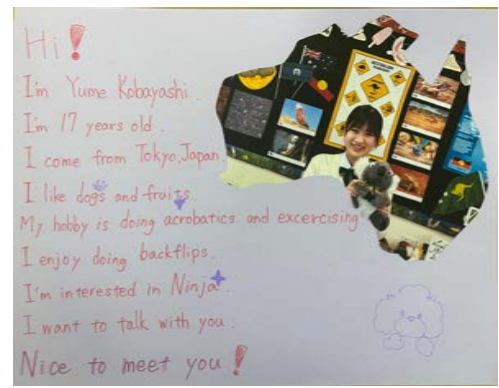 Hi!
I'm Yume Kobayashi.
I'm 17 years old.
I come from Tokyo, Japan.
I like dogs and fruits.
My hobby is doing acrobatics and excercising.
I enjoy doing backflips.
I'm interested in Ninja.
I want to talk with you.
Nice to meet you!